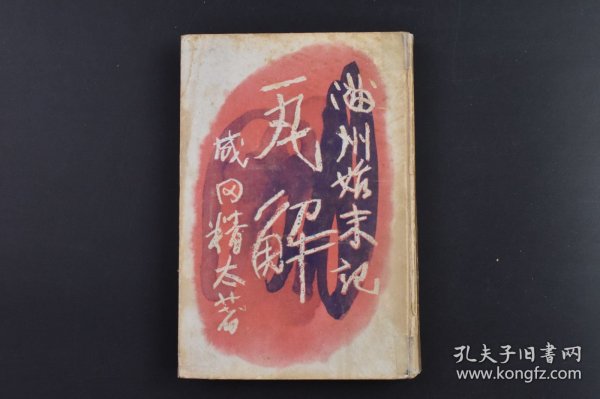 満州始末記
瓦解
成田精太著
孔夫子旧书网
www.kongfz.com